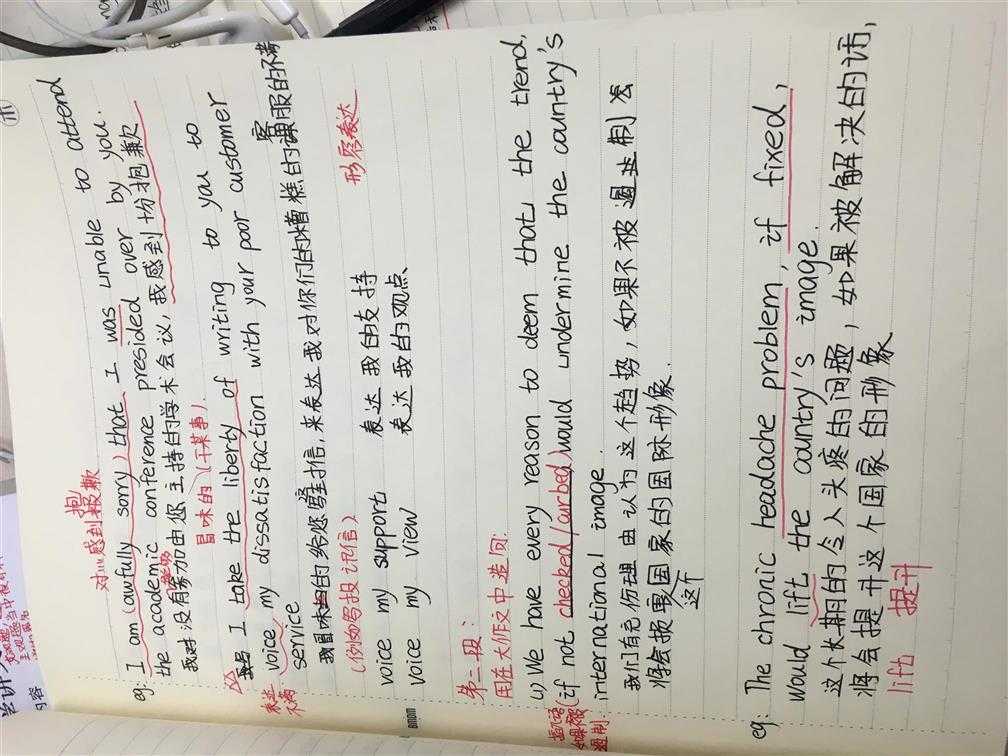 对…感到抱歉
eg: I am (awfully sorry) that I was unable to attend
the academic conference presided over by you.
我对没有参加由您主持的学术会议,我感到抱歉
冒味的(干某事).
I take the liberty of writing to you to
表达
不满
voice my dissatisfaction with your poor customer
service
我冒味的给您写信,来表达我对你们的糟糕的客服的不满
(例如写投诉信)
形容表达
voice my support 表达我的支持
voice my view 表达我的观点
第二段:
用在大作文中造句:
(1) We have every reason to deem that the trend,
(if not checked/curbed) would undermine the country's
international image.
我们有充份理由认为这个趋势,如果不被遏制会
将会损害国家的国际形象.
这个
eg: The chronic headache problem, if fixed,
would lift the country's image.
这个长期的令人头疼的问题,如果被解决的话,
将会提升这个国家的形象
lift 提升